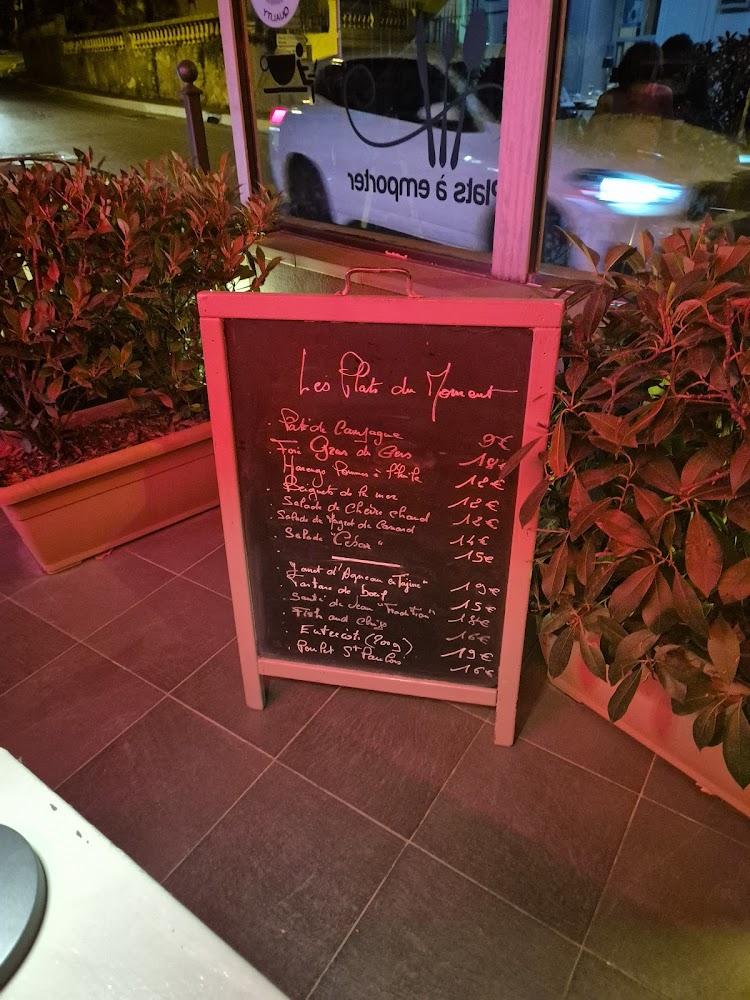 QUALITY
Plats à emporter
Les Plats du Moment
. Paté de Campagne 9€
. Foie Gras de Gers 18€
. Harengs Pommes à l'huile 18€
. Beignets de la mer 12€
. Salade de Chèvre chaud 12€
. Salade de Magret de Canard 14€
. Salade "César" 15€
. Jarret d'Agneau en Tajine" 19€
. Tartare de boeuf 15€
. Sauté de Veau "Tradition" 18€
. Fish and chips 16€
. Entrecôte (200g) 19€
. Poulet St 16€